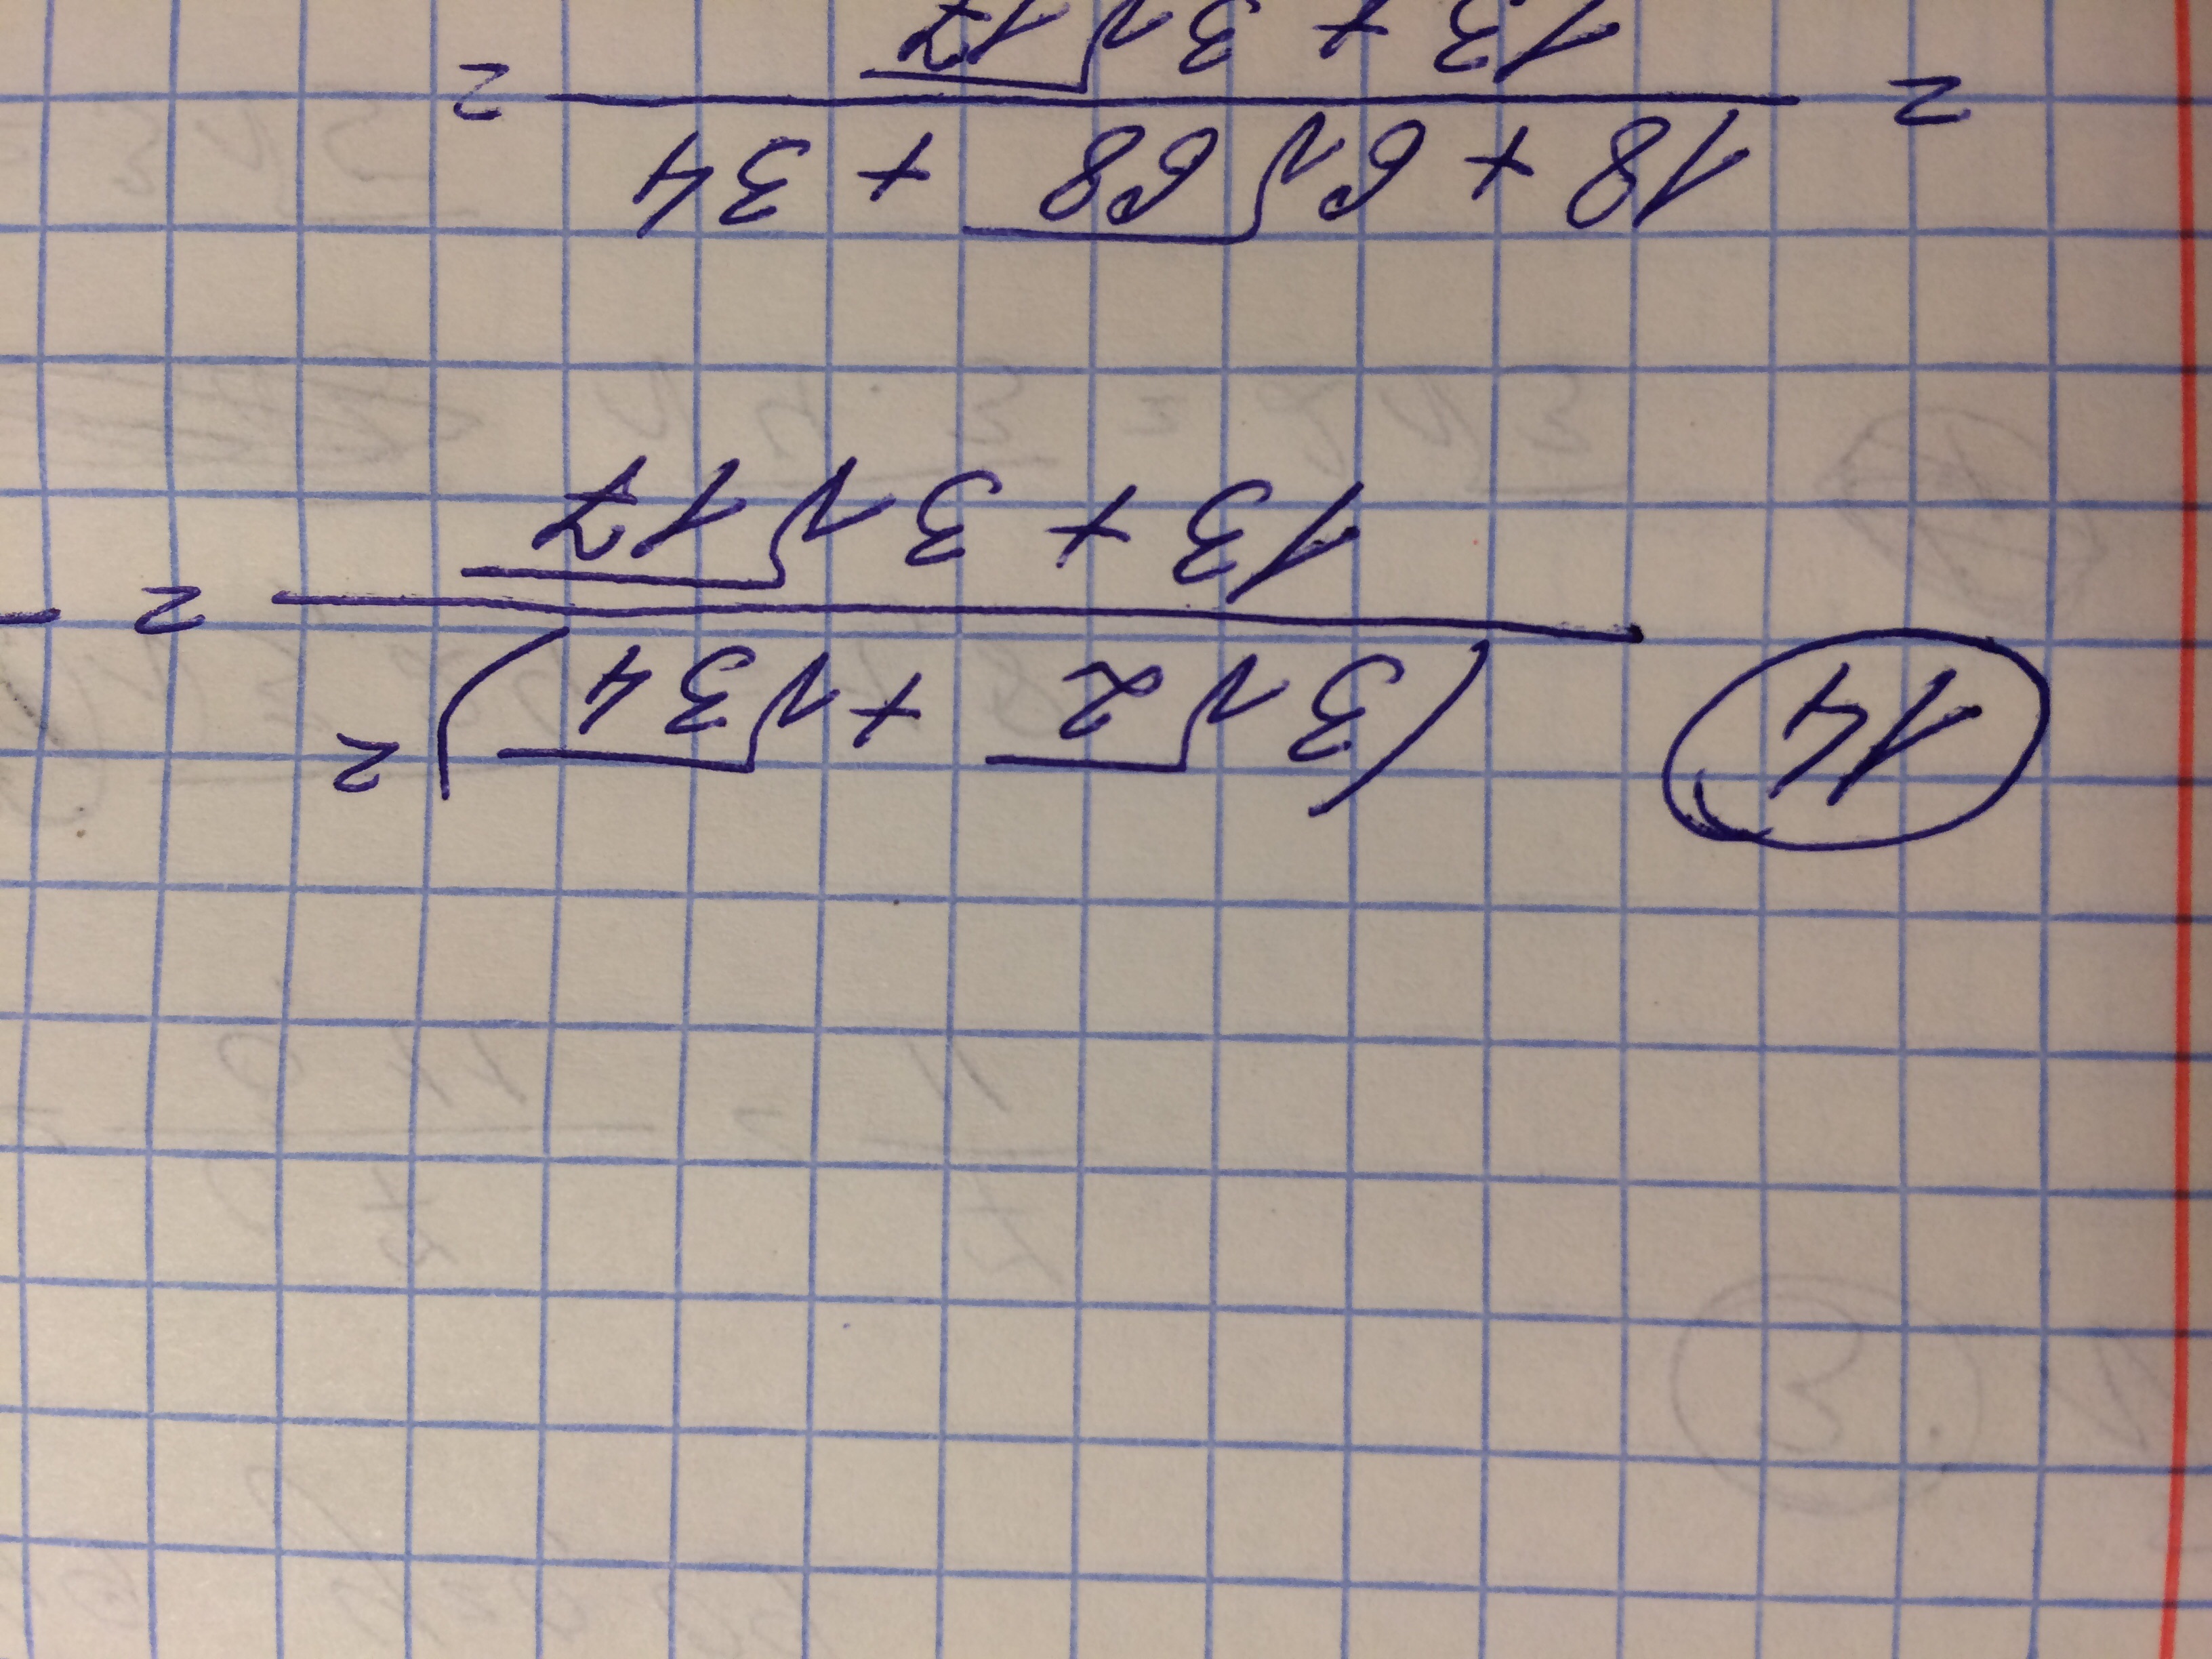 14 (3√2 + √34)²
13 + 3√17 =
= 18 + 6√68 + 34 =
13 + 3√17